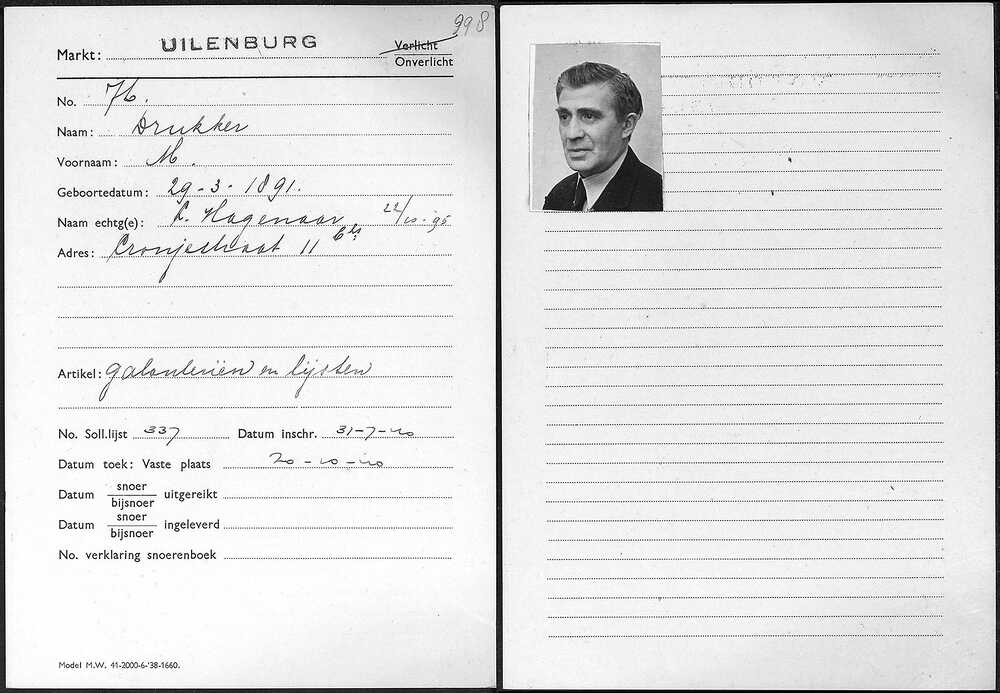 998
Markt: UILENBURG Verlicht
Onverlicht
No. 76.
Naam: Drukker
Voornaam: M.
Geboortedatum: 29-3-1891.
Naam echtg(e): L. Hagenaar 22/10-95
Adres: Cronjéstraat 11 bhs
Artikel: galanterieën en lijsten
No. Soll.lijst 337 Datum inschr. 31-7-40
Datum toek: Vaste plaats 20-10-40
Datum snoer/bijsnoer uitgereikt
Datum snoer/bijsnoer ingeleverd
No. verklaring snoerenboek
Model M.W. 41-2000-6-'38-1660.